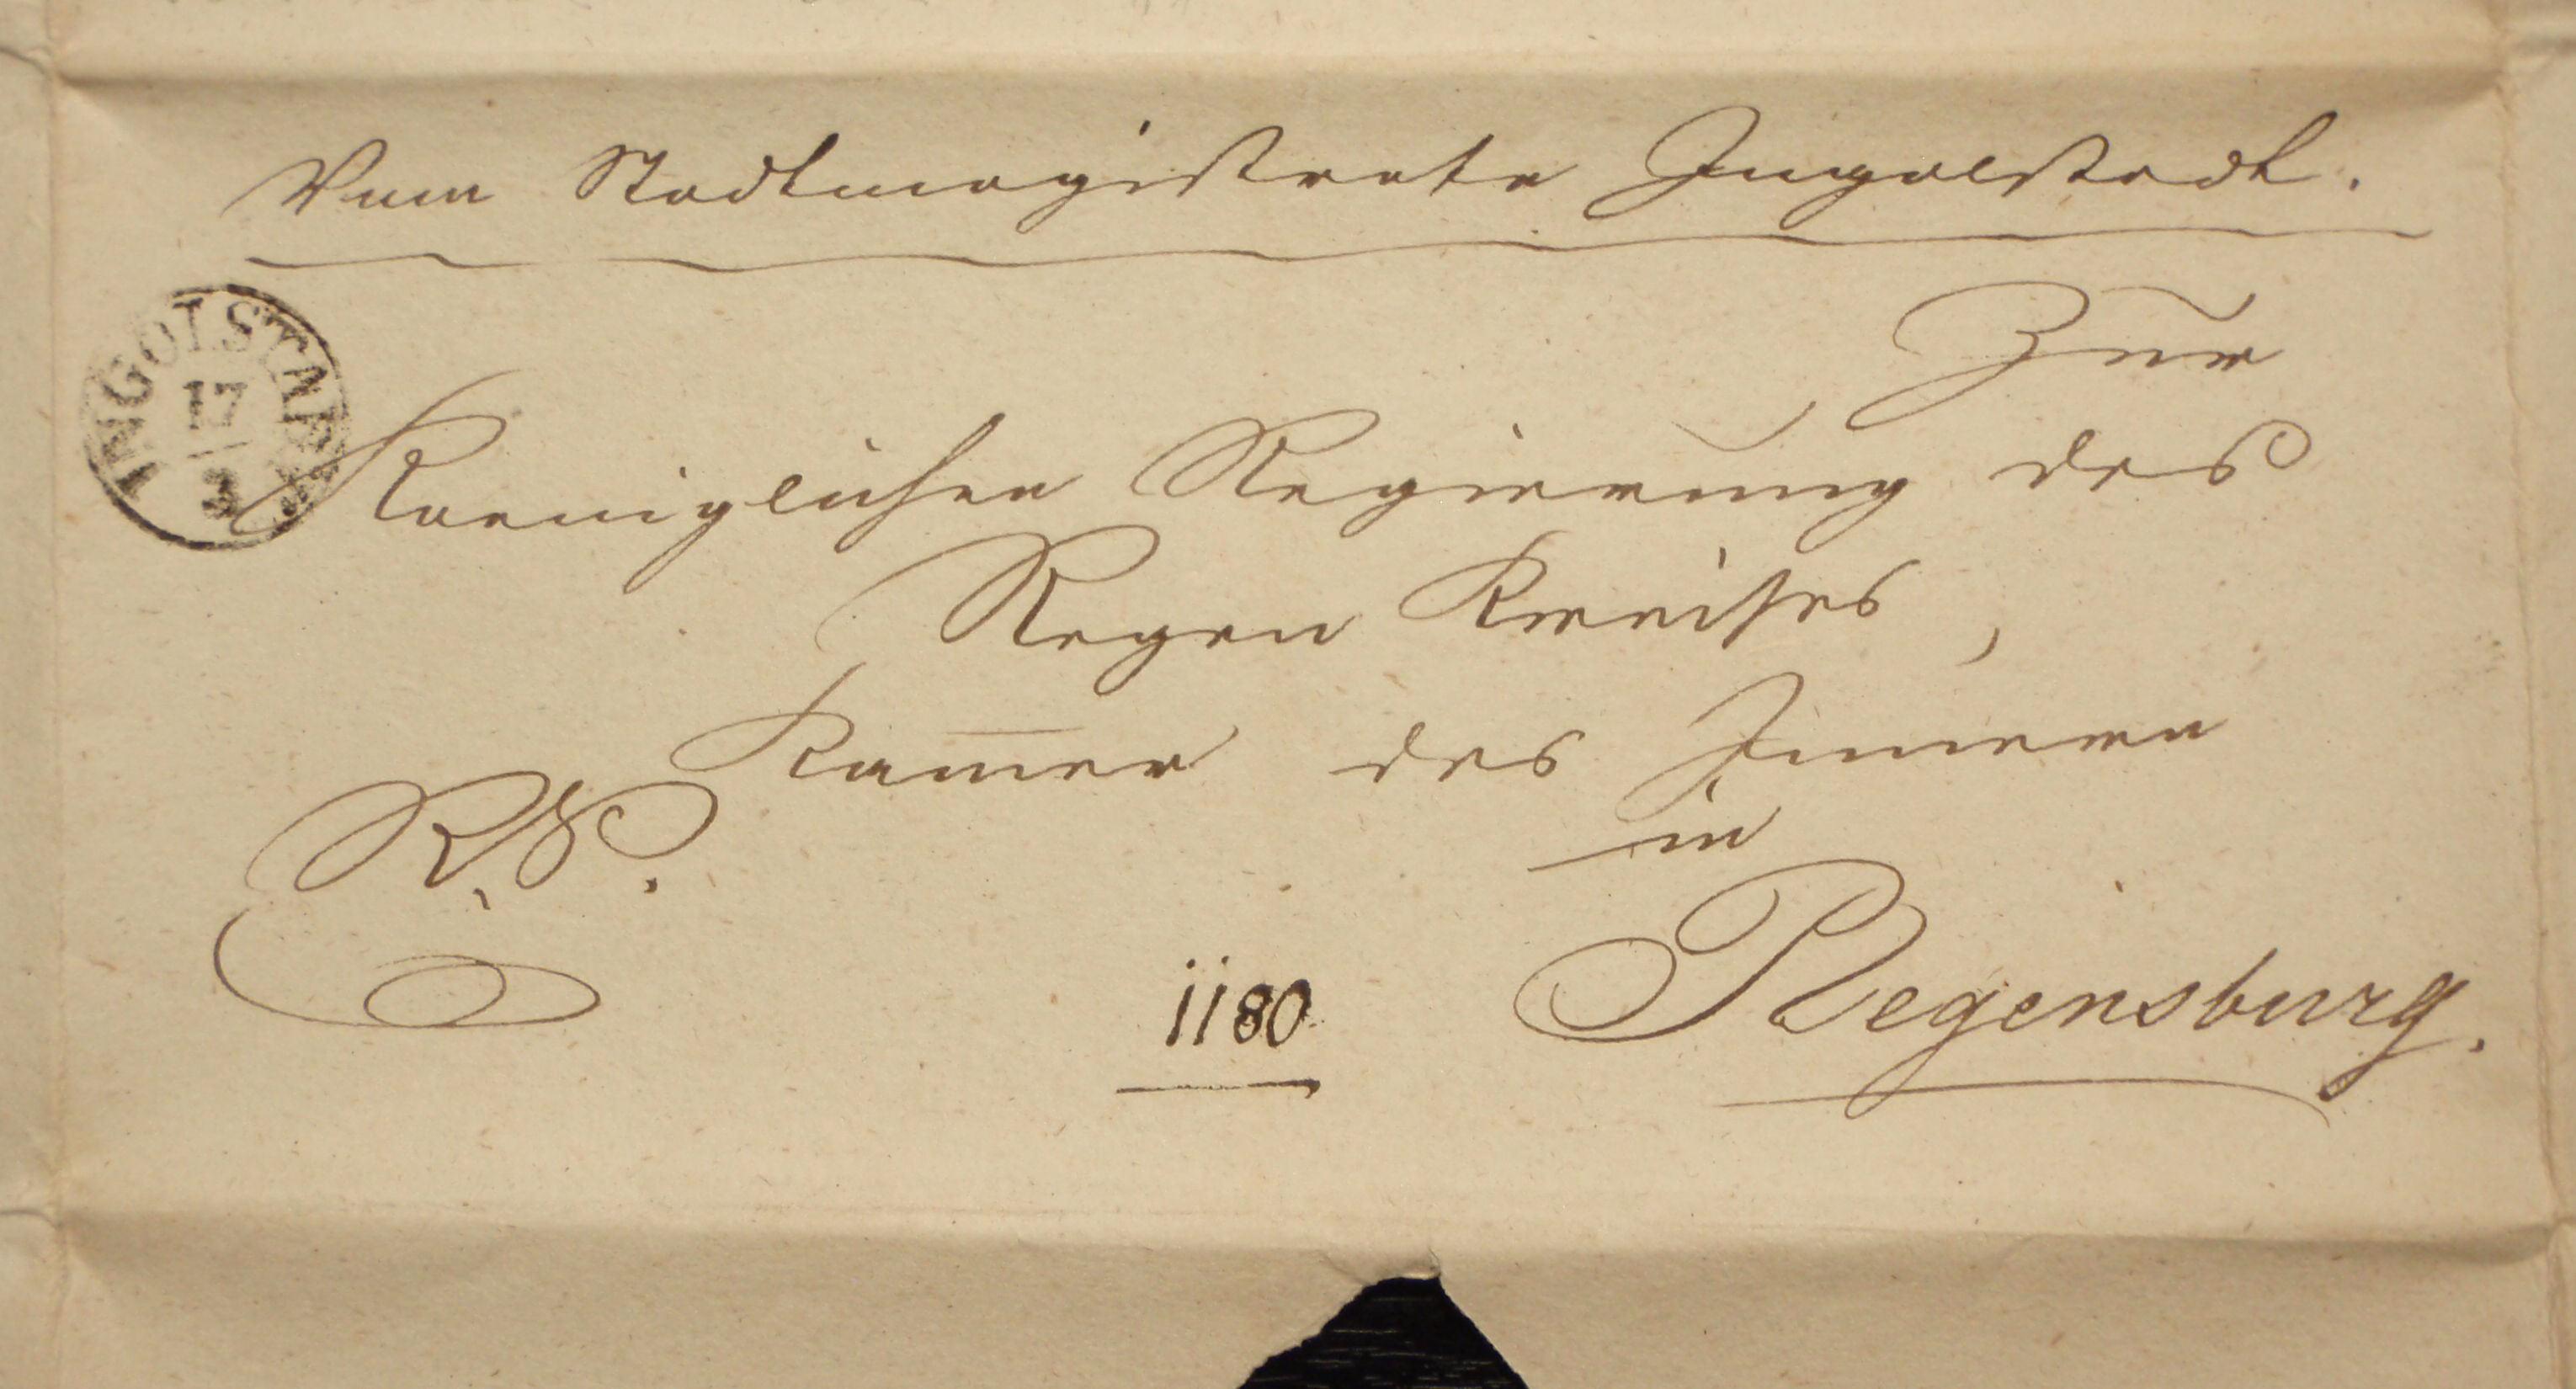 Vom Stadtmagistrate Ingolstadt.
INGOLSTADT
17
3
Zur
Koeniglichen Regierung des
Regen Kreises,
Kam̅er des Innern
in
R. S.
Regensburg.
1180